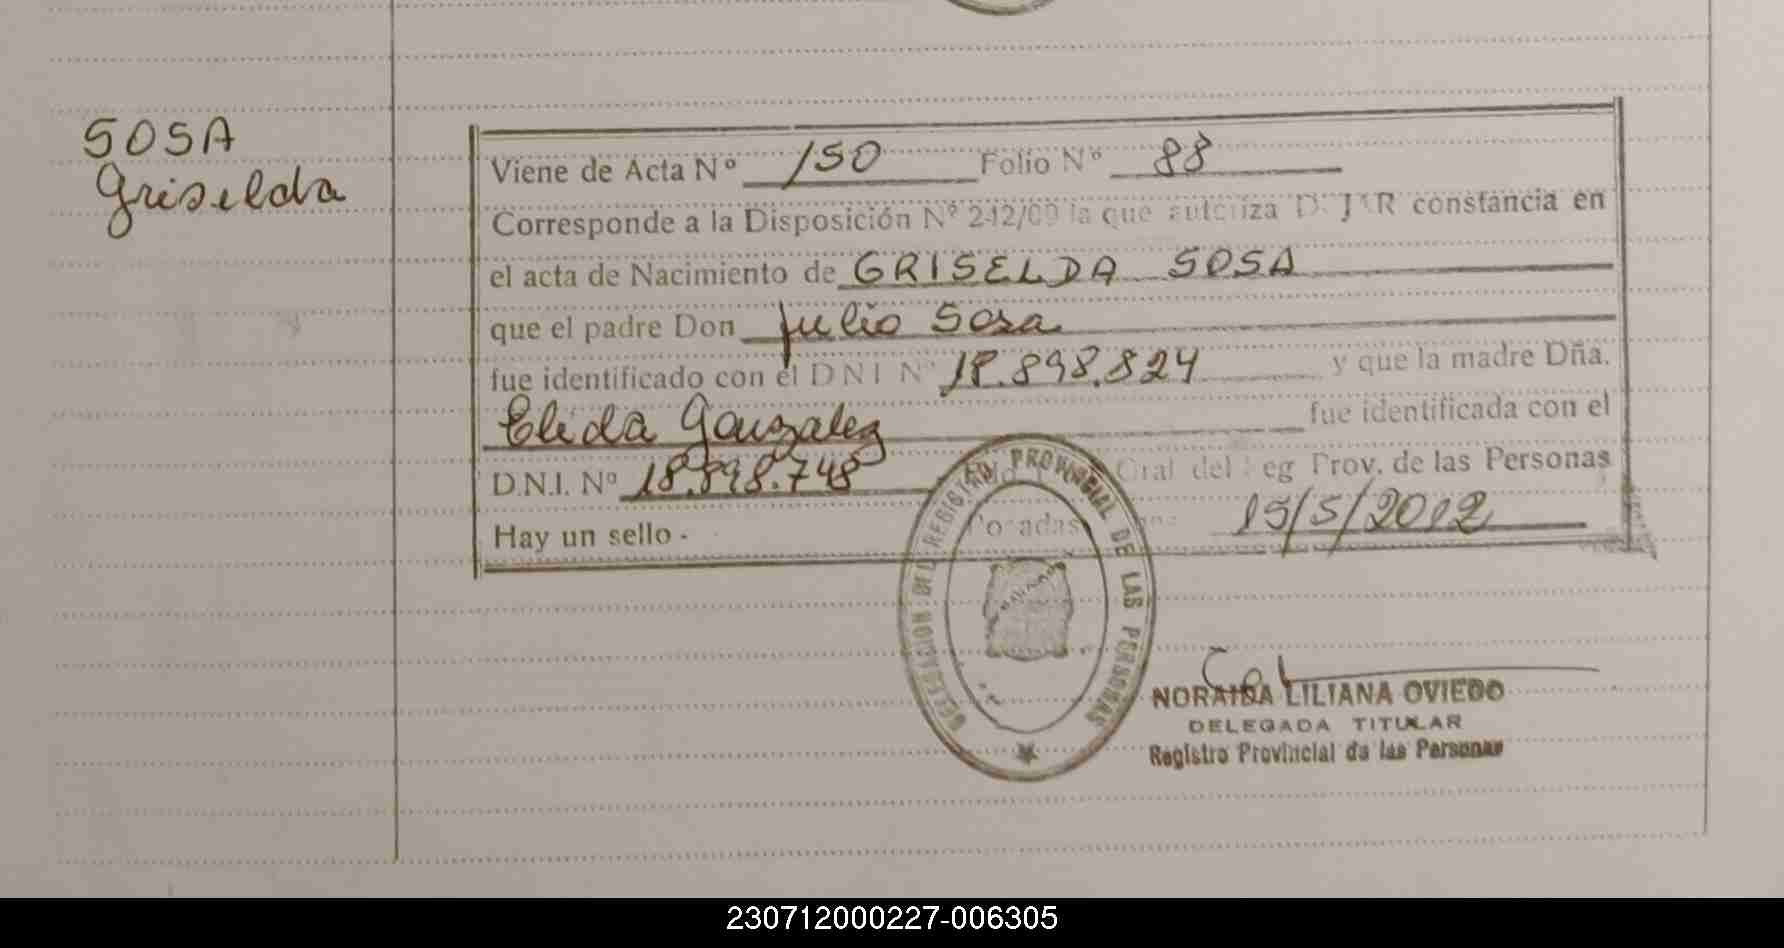 SOSA
Griselda
Viene de Acta Nº 150 Folio Nº 88
Corresponde a la Disposición Nº 242/09 la que autoriza DEJAR constancia en
el acta de Nacimiento de GRISELDA SOSA
que el padre Don Julio Sosa
fue identificado con el DNI Nº 18.898.824 y que la madre Dña.
Elida Gonzalez fue identificada con el
D.N.I. Nº 18.898.748 Gral del Reg Prov. de las Personas
Hay un sello - Posadas 15/5/2012
DELEGACION DEL REGISTRO PROVINCIAL DE LAS PERSONAS
NORAIDA LILIANA OVIEDO
DELEGADA TITULAR
Registro Provincial de las Personas
230712000227-006305